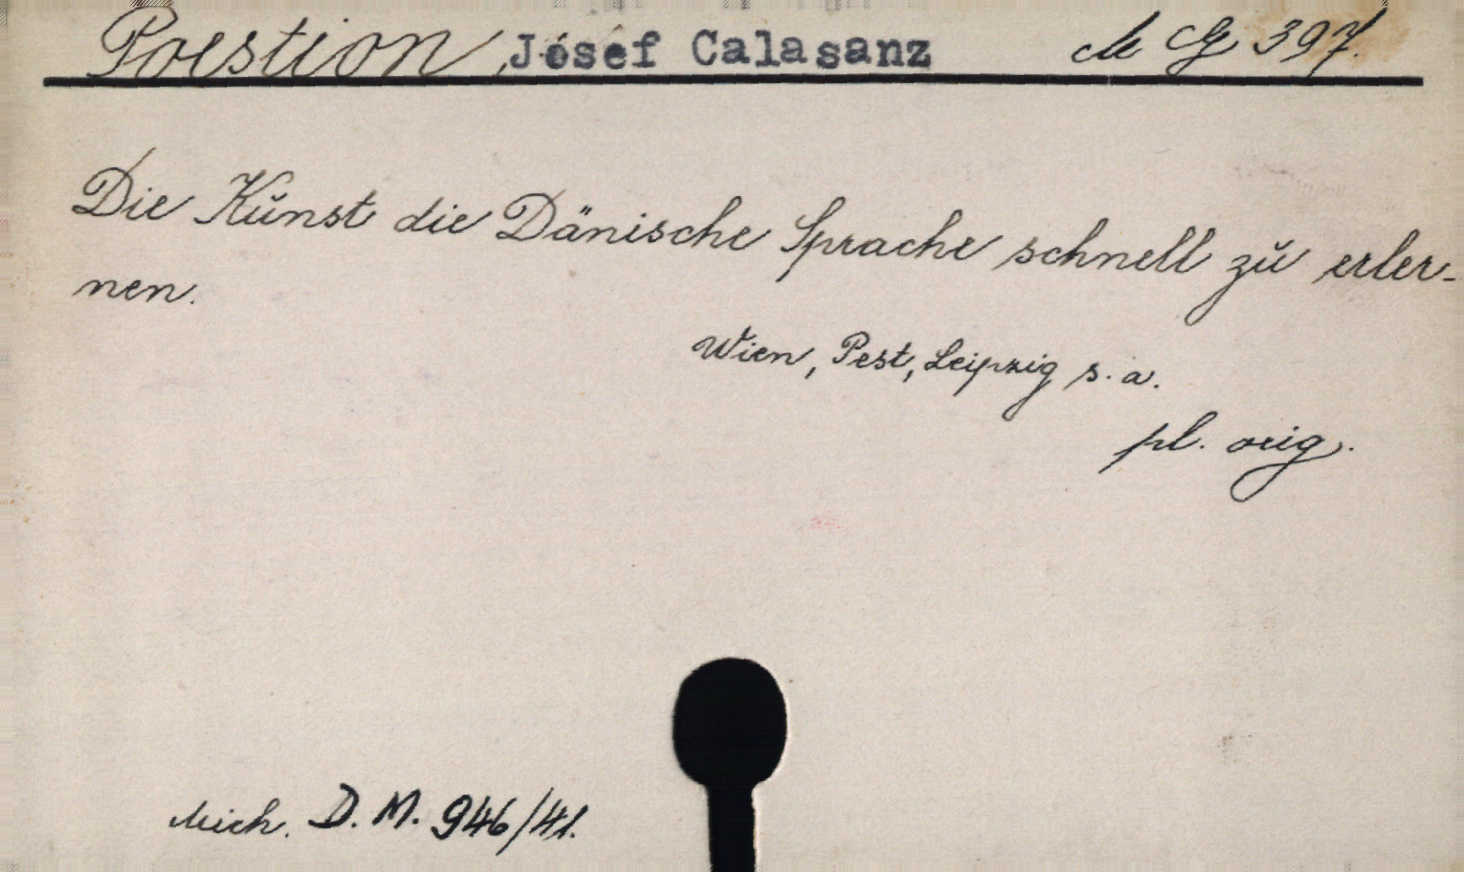 Poestion, Josef Calasanz M G 397.
Die Kŭnst die Dänische Sprache schnell zŭ erler-
nen.
Wien, Pest, Leipzig s. a.
pl. orig.
Mich. D. M. 946/41.